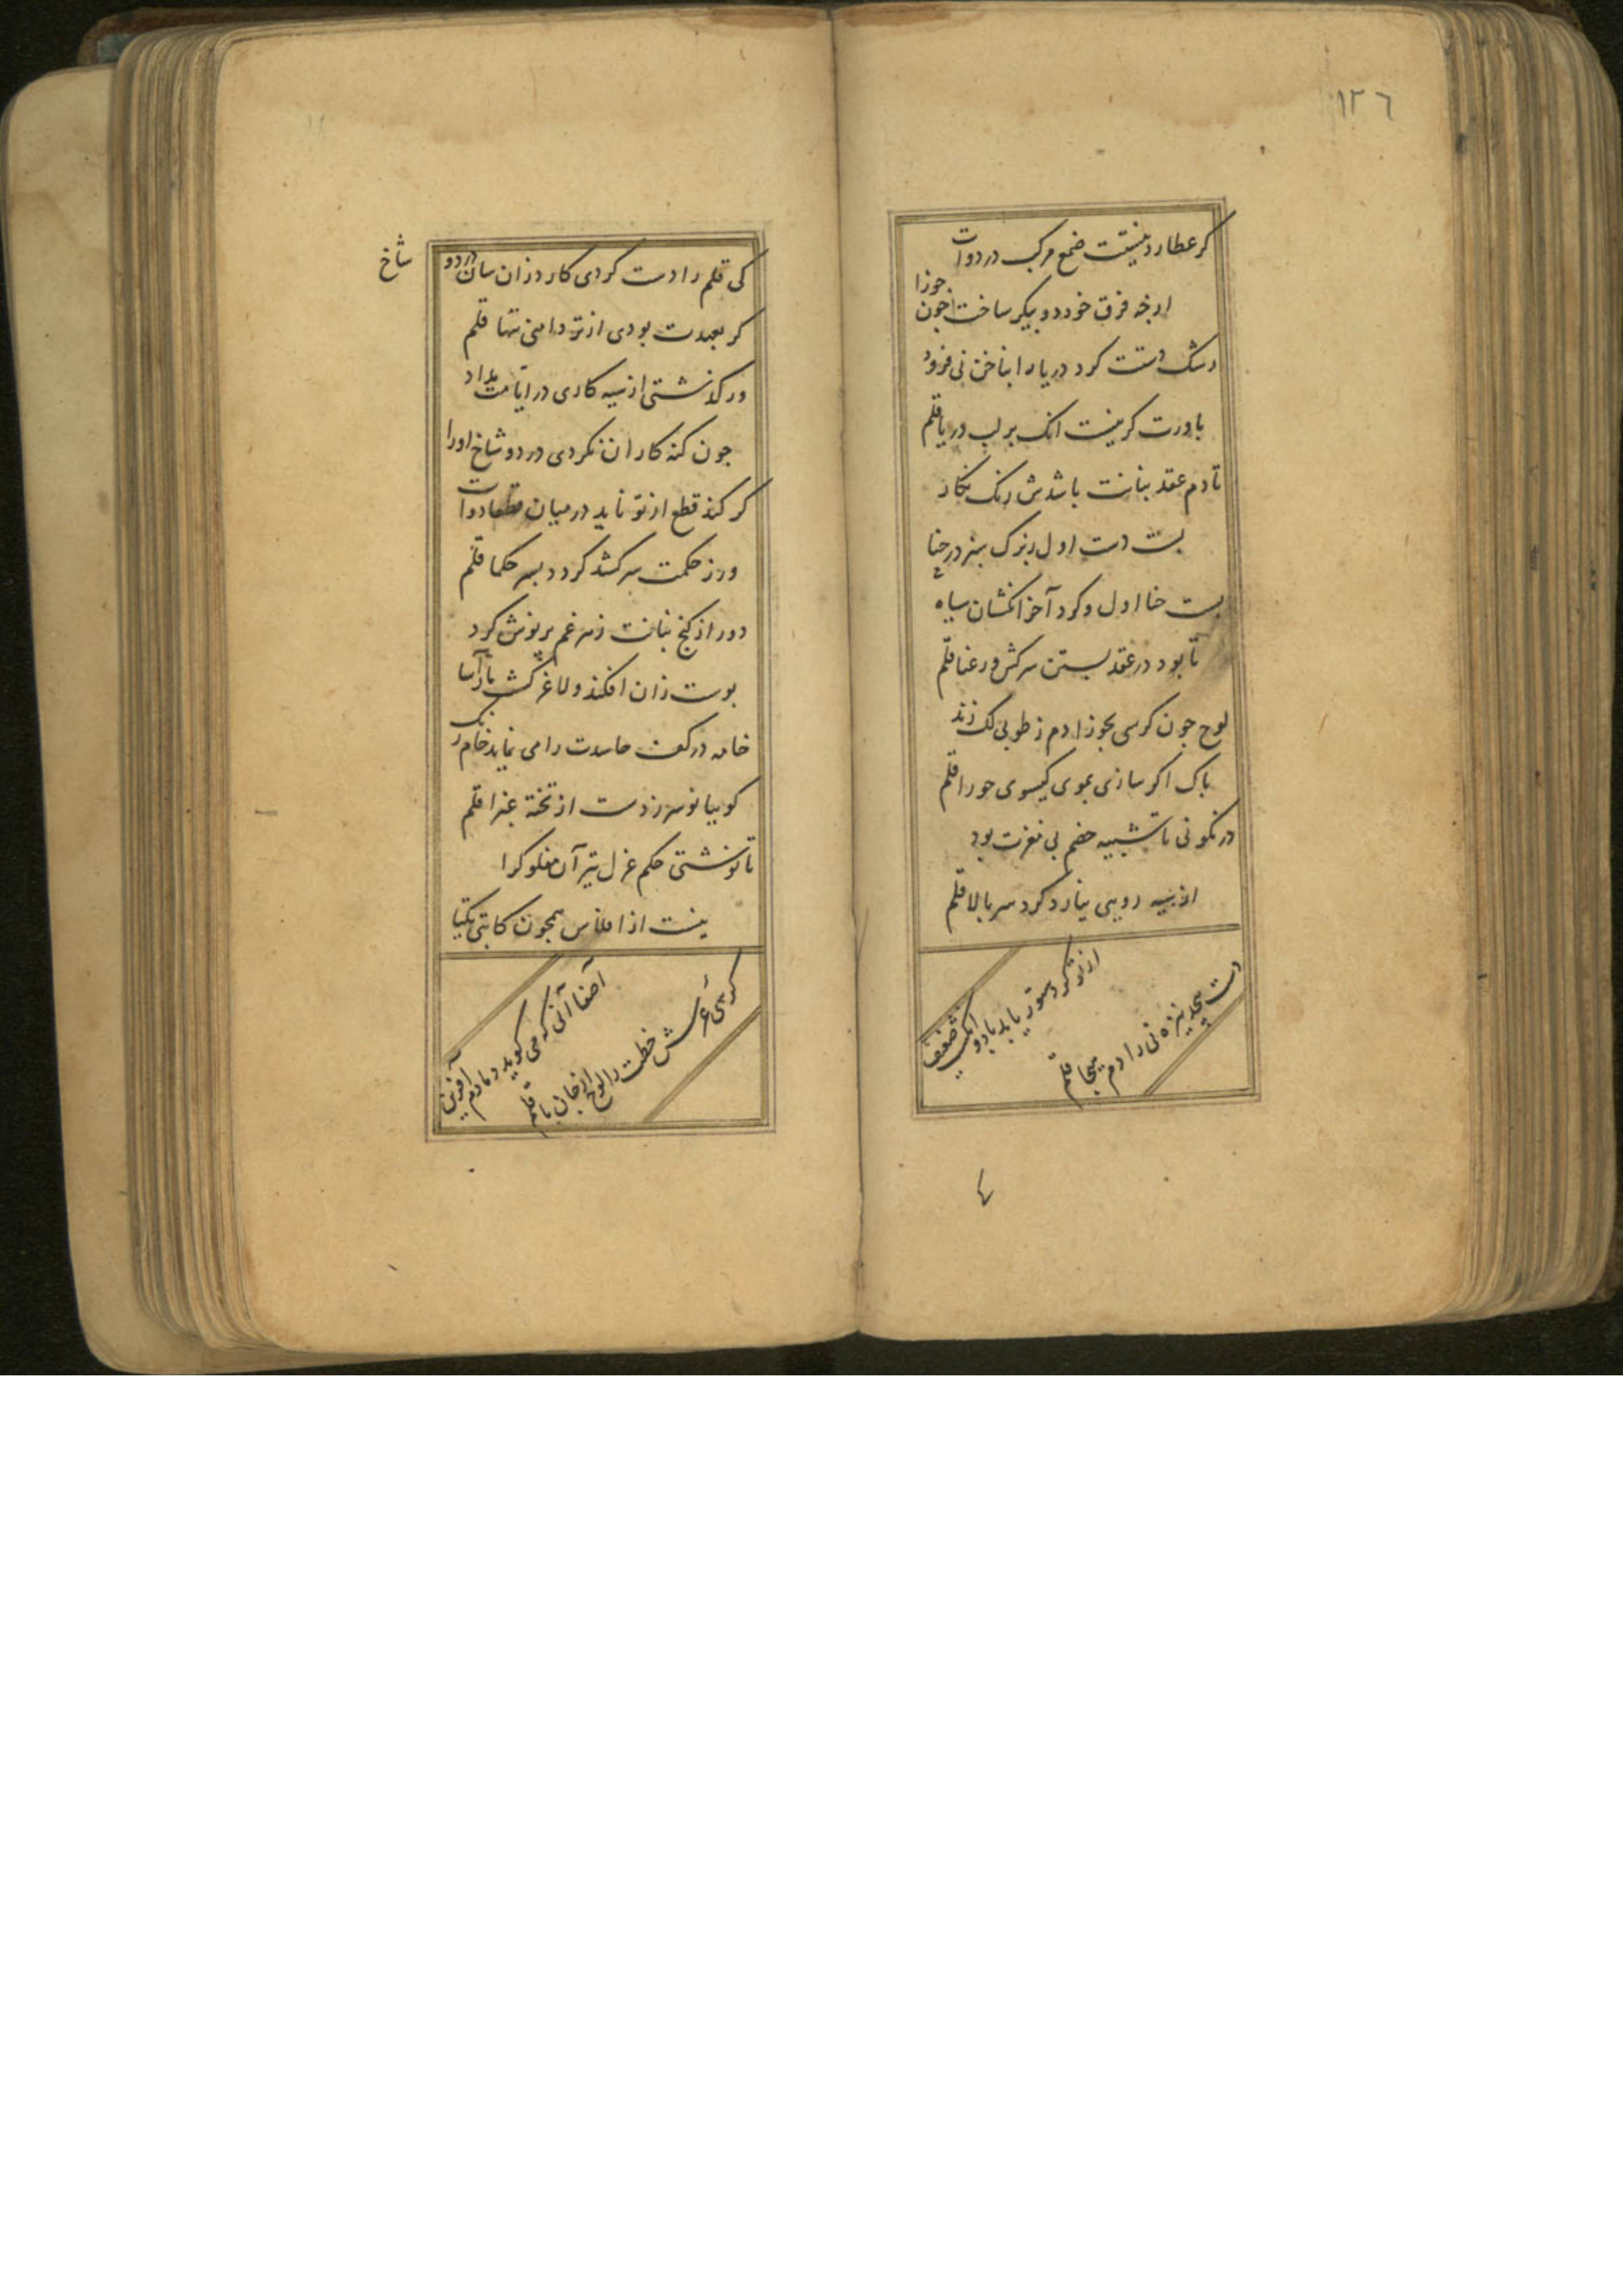 ١٢٦
كر عطارد نیستت ضمغ مركب در دوات
ارجه فرق خود دو بیكر ساخت جون جوزا
رشك دستت كرد دریا را بناخن نی فرود
باورت كر نیست انك بر لب دریا قلم
تا دم عقد بنانت باشدش رنك نكار
بست دست اول ببرك سبز در حنا
بست حنا اول و كرد آخر انكشتان سیاه
تا بود در عقد بستن سركش و رعنا قلم
لوح جون كرسی بجوز ادم ز طوبی لك زند
باك اكر سازی بموی كیسوی حورا قلم
در نكونی تا تشبیه خصم بی مغزت بود
از سیه رویی نیارد كرد سر بالا قلم
از تو كر دستور یابد با دو انكشت ضعیف
دست پیچد نیزه نی را دم هیجا قلم
كی قلم را دست كردی كارد زان سان در دو شاخ
كر بعهدت بودی از تردامنی تنها قلم
ور كذشتی از سیه كاری در ایامت مداد
جون كنه كاران نكردی در دو شاخ اورا
كر كند قطع از تو ناید در میان دوات
ور ز حكمت سر كشد كردد بسر حكما قلم
دور از كنج بنانت زهر غم بر نوش كرد
بوست زان افكند و لاغر كشت
خامه در كف حاسدت را می نماید خام رنك
كوبیا نو سر زدست از تخته عبرا قلم
تا نوشتی حكم عزل تیر آن مفلوك را
نیست از افلاس همجون كاتبی یكتا
آصفا آنی كه می كوید دمادم آفرین
كرسی عرش خطت را لوح از جان با قلم